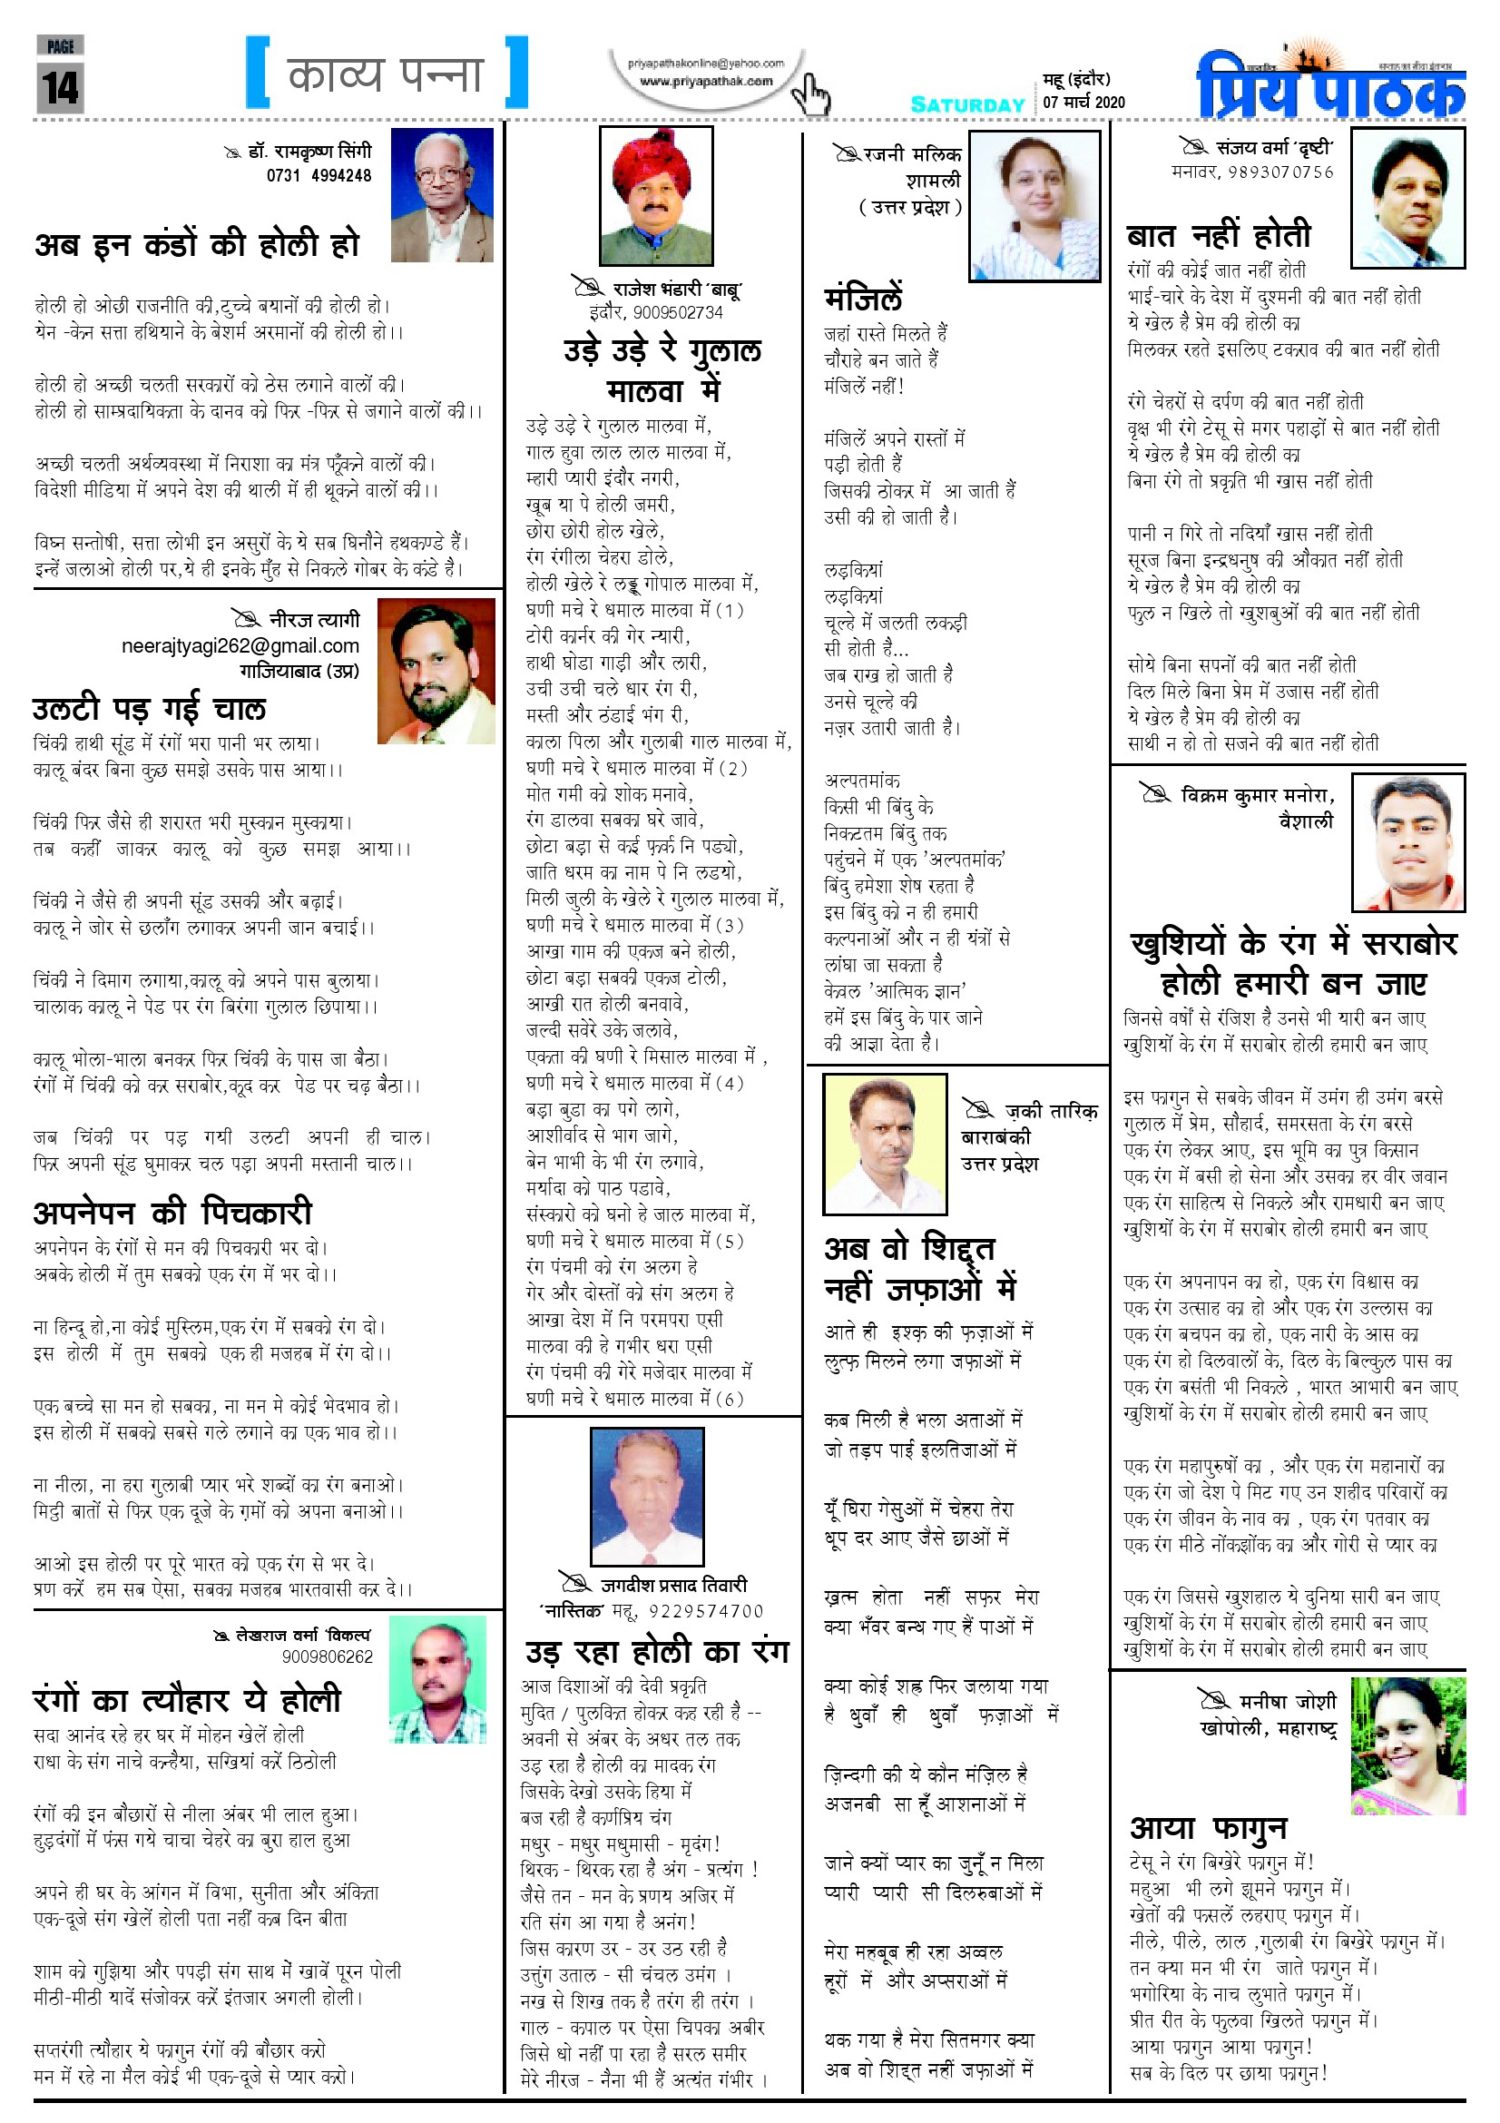 PAGE
14
[ काव्य पन्ना ]
priyapathakonline@yahoo.com
www.priyapathak.com
SATURDAY
महू (इंदौर)
07 मार्च 2020
प्रिय पाठक
डॉ. रामकृष्ण सिंगी
0731 4994248
अब इन कंडों की होली हो
होली हो ओछी राजनीति की,टुच्चे बयानों की होली हो।
येन -केन सत्ता हथियाने के बेशर्म अरमानों की होली हो।।
होली हो अच्छी चलती सरकारों को ठेस लगाने वालों की।
होली हो साम्प्रदायिकता के दानव को फिर -फिर से जगाने वालों की।।
अच्छी चलती अर्थव्यवस्था में निराशा का मंत्र फूँकने वालों की।
विदेशी मीडिया में अपने देश की थाली में ही थूकने वालों की।।
विघ्न सन्तोषी, सत्ता लोभी इन असुरों के ये सब घिनौने हथकण्डे हैं।
इन्हें जलाओ होली पर,ये ही इनके मुँह से निकले गोबर के कंडे है।
नीरज त्यागी
neerajtyagi262@gmail.com
गाजियाबाद (उप्र)
उलटी पड़ गई चाल
चिंकी हाथी सूंड में रंगों भरा पानी भर लाया।
कालू बंदर बिना कुछ समझे उसके पास आया।।
चिंकी फिर जैसे ही शरारत भरी मुस्कान मुस्काया।
तब कहीं जाकर कालू को कुछ समझ आया।।
चिंकी ने जैसे ही अपनी सूंड उसकी और बढ़ाई।
कालू ने जोर से छलाँग लगाकर अपनी जान बचाई।।
चिंकी ने दिमाग लगाया,कालू को अपने पास बुलाया।
चालाक कालू ने पेड पर रंग बिरंगा गुलाल छिपाया।।
कालू भोला-भाला बनकर फिर चिंकी के पास जा बैठा।
रंगों में चिंकी को कर सराबोर,कूद कर पेड पर चढ़ बैठा।।
जब चिंकी पर पड़ गयी उलटी अपनी ही चाल।
फिर अपनी सूंड घुमाकर चल पड़ा अपनी मस्तानी चाल।।
अपनेपन की पिचकारी
अपनेपन के रंगों से मन की पिचकारी भर दो।
अबके होली में तुम सबको एक रंग में भर दो।।
ना हिन्दू हो,ना कोई मुस्लिम,एक रंग में सबको रंग दो।
इस होली में तुम सबको एक ही मजहब में रंग दो।।
एक बच्चे सा मन हो सबका, ना मन मे कोई भेदभाव हो।
इस होली में सबको सबसे गले लगाने का एक भाव हो।।
ना नीला, ना हरा गुलाबी प्यार भरे शब्दों का रंग बनाओ।
मिट्ठी बातों से फिर एक दूजे के ग़मों को अपना बनाओ।।
आओ इस होली पर पूरे भारत को एक रंग से भर दे।
प्रण करें हम सब ऐसा, सबका मजहब भारतवासी कर दे।।
लेखराज वर्मा ‘विकल्प’
9009806262
रंगों का त्यौहार ये होली
सदा आनंद रहे हर घर में मोहन खेलें होली
राधा के संग नाचे कन्हैया, सखियां करें ठिठोली
रंगों की इन बौछारों से नीला अंबर भी लाल हुआ।
हुड़दंगों में फंस गये चाचा चेहरे का बुरा हाल हुआ
अपने ही घर के आंगन में विभा, सुनीता और अंकिता
एक-दूजे संग खेलें होली पता नहीं कब दिन बीता
शाम को गुझिया और पपड़ी संग साथ में खावें पूरन पोली
मीठी-मीठी यादें संजोकर करें इंतजार अगली होली।
सप्तरंगी त्यौहार ये फागुन रंगों की बौछार करो
मन में रहे ना मैल कोई भी एक-दूजे से प्यार करो।
राजेश भंडारी ‘बाबू’
इंदौर, 9009502734
उड़े उड़े रे गुलाल
मालवा में
उड़े उड़े रे गुलाल मालवा में,
गाल हुवा लाल लाल मालवा में,
म्हारी प्यारी इंदौर नगरी,
खूब या पे होली जमरी,
छोरा छोरी होल खेले,
रंग रंगीला चेहरा डोले,
होली खेले रे लड्डू गोपाल मालवा में,
घणी मचे रे धमाल मालवा में (1)
टोरी कार्नर की गेर न्यारी,
हाथी घोडा गाड़ी और लारी,
उची उची चले धार रंग री,
मस्ती और ठंडाई भंग री,
काला पिला और गुलाबी गाल मालवा में,
घणी मचे रे धमाल मालवा में (2)
मोत गमी को शोक मनावे,
रंग डालवा सबका घरे जावे,
छोटा बड़ा से कई फ़र्क नि पड्यो,
जाति धरम का नाम पे नि लडयो,
मिली जुली के खेले रे गुलाल मालवा में,
घणी मचे रे धमाल मालवा में (3)
आखा गाम की एकज बने होली,
छोटा बड़ा सबकी एकज टोली,
आखी रात होली बनवावे,
जल्दी सवेरे उके जलावे,
एकता की घणी रे मिसाल मालवा में ,
घणी मचे रे धमाल मालवा में (4)
बड़ा बुडा का पगे लागे,
आशीर्वाद से भाग जागे,
बेन भाभी के भी रंग लगावे,
मर्यादा को पाठ पडावे,
संस्कारो को घनो हे जाल मालवा में,
घणी मचे रे धमाल मालवा में (5)
रंग पंचमी को रंग अलग हे
गेर और दोस्तों को संग अलग हे
आखा देश में नि परमपरा एसी
मालवा की हे गभीर धरा एसी
रंग पंचमी की गेरे मजेदार मालवा में
घणी मचे रे धमाल मालवा में (6)
जगदीश प्रसाद तिवारी
‘नास्तिक’ महू, 9229574700
उड़ रहा होली का रंग
आज दिशाओं की देवी प्रकृति
मुदित / पुलकित होकर कह रही है --
अवनी से अंबर के अधर तल तक
उड़ रहा है होली का मादक रंग
जिसके देखो उसके हिया में
बज रही है कर्णप्रिय चंग
मधुर - मधुर मधुमासी - मृदंग!
थिरक - थिरक रहा है अंग - प्रत्यंग !
जैसे तन - मन के प्रणय अजिर में
रति संग आ गया है अनंग!
जिस कारण उर - उर उठ रही है
उत्तुंग उताल - सी चंचल उमंग ।
नख से शिख तक है तरंग ही तरंग ।
गाल - कपाल पर ऐसा चिपका अबीर
जिसे धो नहीं पा रहा है सरल समीर
मेरे नीरज - नैना भी हैं अत्यंत गंभीर ।
रजनी मलिक
शामली
( उत्तर प्रदेश )
मंजिलें
जहां रास्ते मिलते हैं
चौराहे बन जाते हैं
मंजिलें नहीं!
मंजिलें अपने रास्तों में
पड़ी होती हैं
जिसकी ठोकर में आ जाती हैं
उसी की हो जाती है।
लड़कियां
लड़कियां
चूल्हे में जलती लकड़ी
सी होती है...
जब राख हो जाती है
उनसे चूल्हे की
नज़र उतारी जाती है।
अल्पतमांक
किसी भी बिंदु के
निकटतम बिंदु तक
पहुंचने में एक ’अल्पतमांक’
बिंदु हमेशा शेष रहता है
इस बिंदु को न ही हमारी
कल्पनाओं और न ही यंत्रों से
लांघा जा सकता है
केवल ’आत्मिक ज्ञान’
हमें इस बिंदु के पार जाने
की आज्ञा देता है।
ज़की तारिक़
बाराबंकी
उत्तर प्रदेश
अब वो शिद्दत
नहीं जफ़ाओं में
आते ही इश्क़ की फ़ज़ाओं में
लुत्फ़ मिलने लगा जफ़ाओं में
कब मिली है भला अताओं में
जो तड़प पाई इलतिजाओं में
यूँ घिरा गेसुओं में चेहरा तेरा
धूप दर आए जैसे छाओं में
ख़त्म होता नहीं सफ़र मेरा
क्या भँवर बन्ध गए हैं पाओं में
क्या कोई शह्र फिर जलाया गया
है धुवाँ ही धुवाँ फ़ज़ाओं में
ज़िन्दगी की ये कौन मंज़िल है
अजनबी सा हूँ आशनाओं में
जाने क्यों प्यार का जुनूँ न मिला
प्यारी प्यारी सी दिलरुबाओं में
मेरा महबूब ही रहा अव्वल
हूरों में और अप्सराओं में
थक गया है मेरा सितमगर क्या
अब वो शिद्दत नहीं जफ़ाओं में
संजय वर्मा ‘दृष्टी’
मनावर, 9893070756
बात नहीं होती
रंगों की कोई जात नहीं होती
भाई-चारे के देश में दुश्मनी की बात नहीं होती
ये खेल है प्रेम की होली का
मिलकर रहते इसलिए टकराव की बात नहीं होती
रंगे चेहरों से दर्पण की बात नहीं होती
वृक्ष भी रंगे टेसू से मगर पहाड़ों से बात नहीं होती
ये खेल है प्रेम की होली का
बिना रंगे तो प्रकृति भी खास नहीं होती
पानी न गिरे तो नदियाँ खास नहीं होती
सूरज बिना इन्द्रधनुष की औकात नहीं होती
ये खेल है प्रेम की होली का
फुल न खिले तो खुशबुओं की बात नहीं होती
सोये बिना सपनों की बात नहीं होती
दिल मिले बिना प्रेम में उजास नहीं होती
ये खेल है प्रेम की होली का
साथी न हो तो सजने की बात नहीं होती
विक्रम कुमार मनोरा,
वैशाली
खुशियों के रंग में सराबोर
होली हमारी बन जाए
जिनसे वर्षों से रंजिश है उनसे भी यारी बन जाए
खुशियों के रंग में सराबोर होली हमारी बन जाए
इस फागुन से सबके जीवन में उमंग ही उमंग बरसे
गुलाल में प्रेम, सौहार्द, समरसता के रंग बरसे
एक रंग लेकर आए, इस भूमि का पुत्र किसान
एक रंग में बसी हो सेना और उसका हर वीर जवान
एक रंग साहित्य से निकले और रामधारी बन जाए
खुशियों के रंग में सराबोर होली हमारी बन जाए
एक रंग अपनापन का हो, एक रंग विश्वास का
एक रंग उत्साह का हो और एक रंग उल्लास का
एक रंग बचपन का हो, एक नारी के आस का
एक रंग हो दिलवालों के, दिल के बिल्कुल पास का
एक रंग बसंती भी निकले , भारत आभारी बन जाए
खुशियों के रंग में सराबोर होली हमारी बन जाए
एक रंग महापुरुषों का , और एक रंग महानारों का
एक रंग जो देश पे मिट गए उन शहीद परिवारों का
एक रंग जीवन के नाव का , एक रंग पतवार का
एक रंग मीठे नोंकझोंक का और गोरी से प्यार का
एक रंग जिससे खुशहाल ये दुनिया सारी बन जाए
खुशियों के रंग में सराबोर होली हमारी बन जाए
खुशियों के रंग में सराबोर होली हमारी बन जाए
मनीषा जोशी
खोपोली, महाराष्ट्र
आया फागुन
टेसू ने रंग बिखेरे फागुन में!
महुआ भी लगे झूमने फागुन में।
खेतों की फसलें लहराए फागुन में।
नीले, पीले, लाल ,गुलाबी रंग बिखेरे फागुन में।
तन क्या मन भी रंग जाते फागुन में।
भगोरिया के नाच लुभाते फागुन में।
प्रीत रीत के फुलवा खिलते फागुन में।
आया फागुन आया फागुन!
सब के दिल पर छाया फागुन!